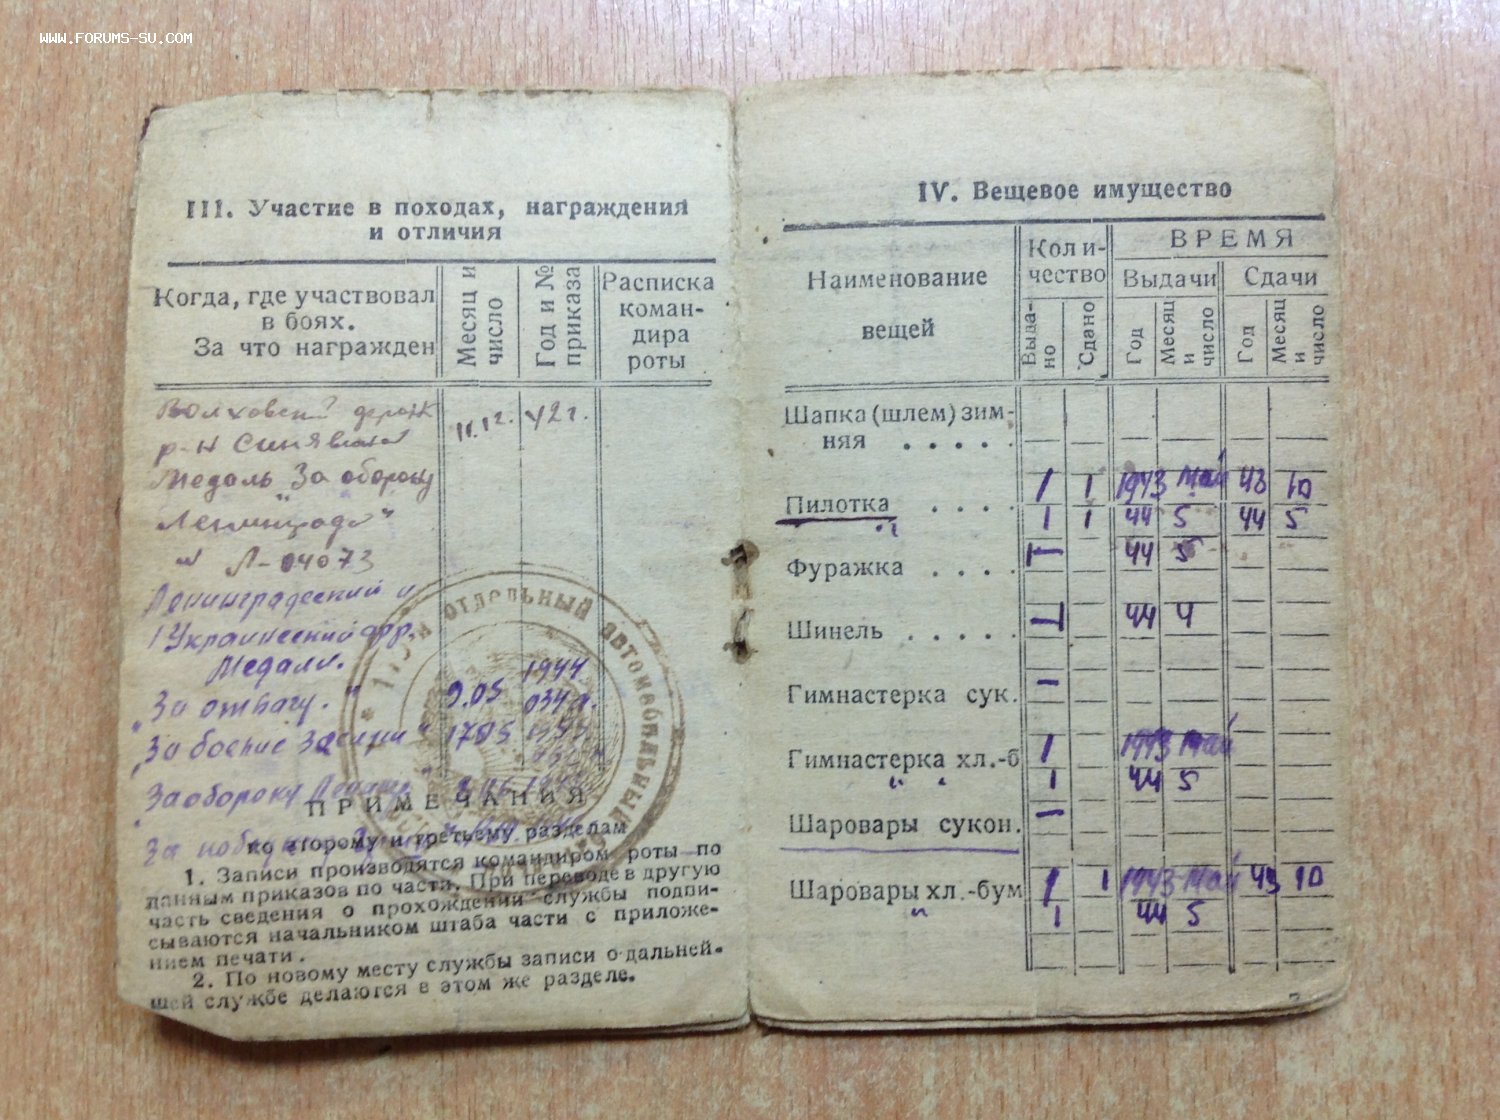 www.FORUMS-SU.COM
III. Участие в походах, награждения
и отличия
Когда, где участвовал
в боях.
За что награжден
Месяц и
число
Год и №
приказа
Расписка
коман-
дира
роты
р-н
11.12. 42 г.
Медаль "За оборону
Ленинграда"
Л-04073
Ленинградский и
1 Украинский фр.
Медали.
"За отвагу." 9.05 1944
"За боевые 1705
За оборону
За
отдельный автомобильный
ПРИМЕЧАНИЯ
ко второму и третьему разделам
1. Записи производятся командиром роты по
данным приказов по части. При переводе в другую
часть сведения о прохождении службы подпи-
сываются начальником штаба части с приложе-
нием печати.
2. По новому месту службы записи о дальней-
шей службе делаются в этом же разделе.
IV. Вещевое имущество
Наименование
вещей
Коли-
чество
Выда-
но
Сдано
ВРЕМЯ
Выдачи
Сдачи
Год
Месяц
и
число
Год
Месяц
и
число
Шапка (шлем) зим-
няя . . . .
Пилотка . . . . 1 1 1943 Май 43 10
" 1 1 44 5 44 5
Фуражка . . . . 1 44 5
Шинель . . . . . 1 44 4
Гимнастерка сук. –
Гимнастерка хл.-б 1 1943 Май
" " 1 44 5
Шаровары сукон. –
Шаровары хл.-бум 1 1 1943 Май 43 10
" 1 44 5